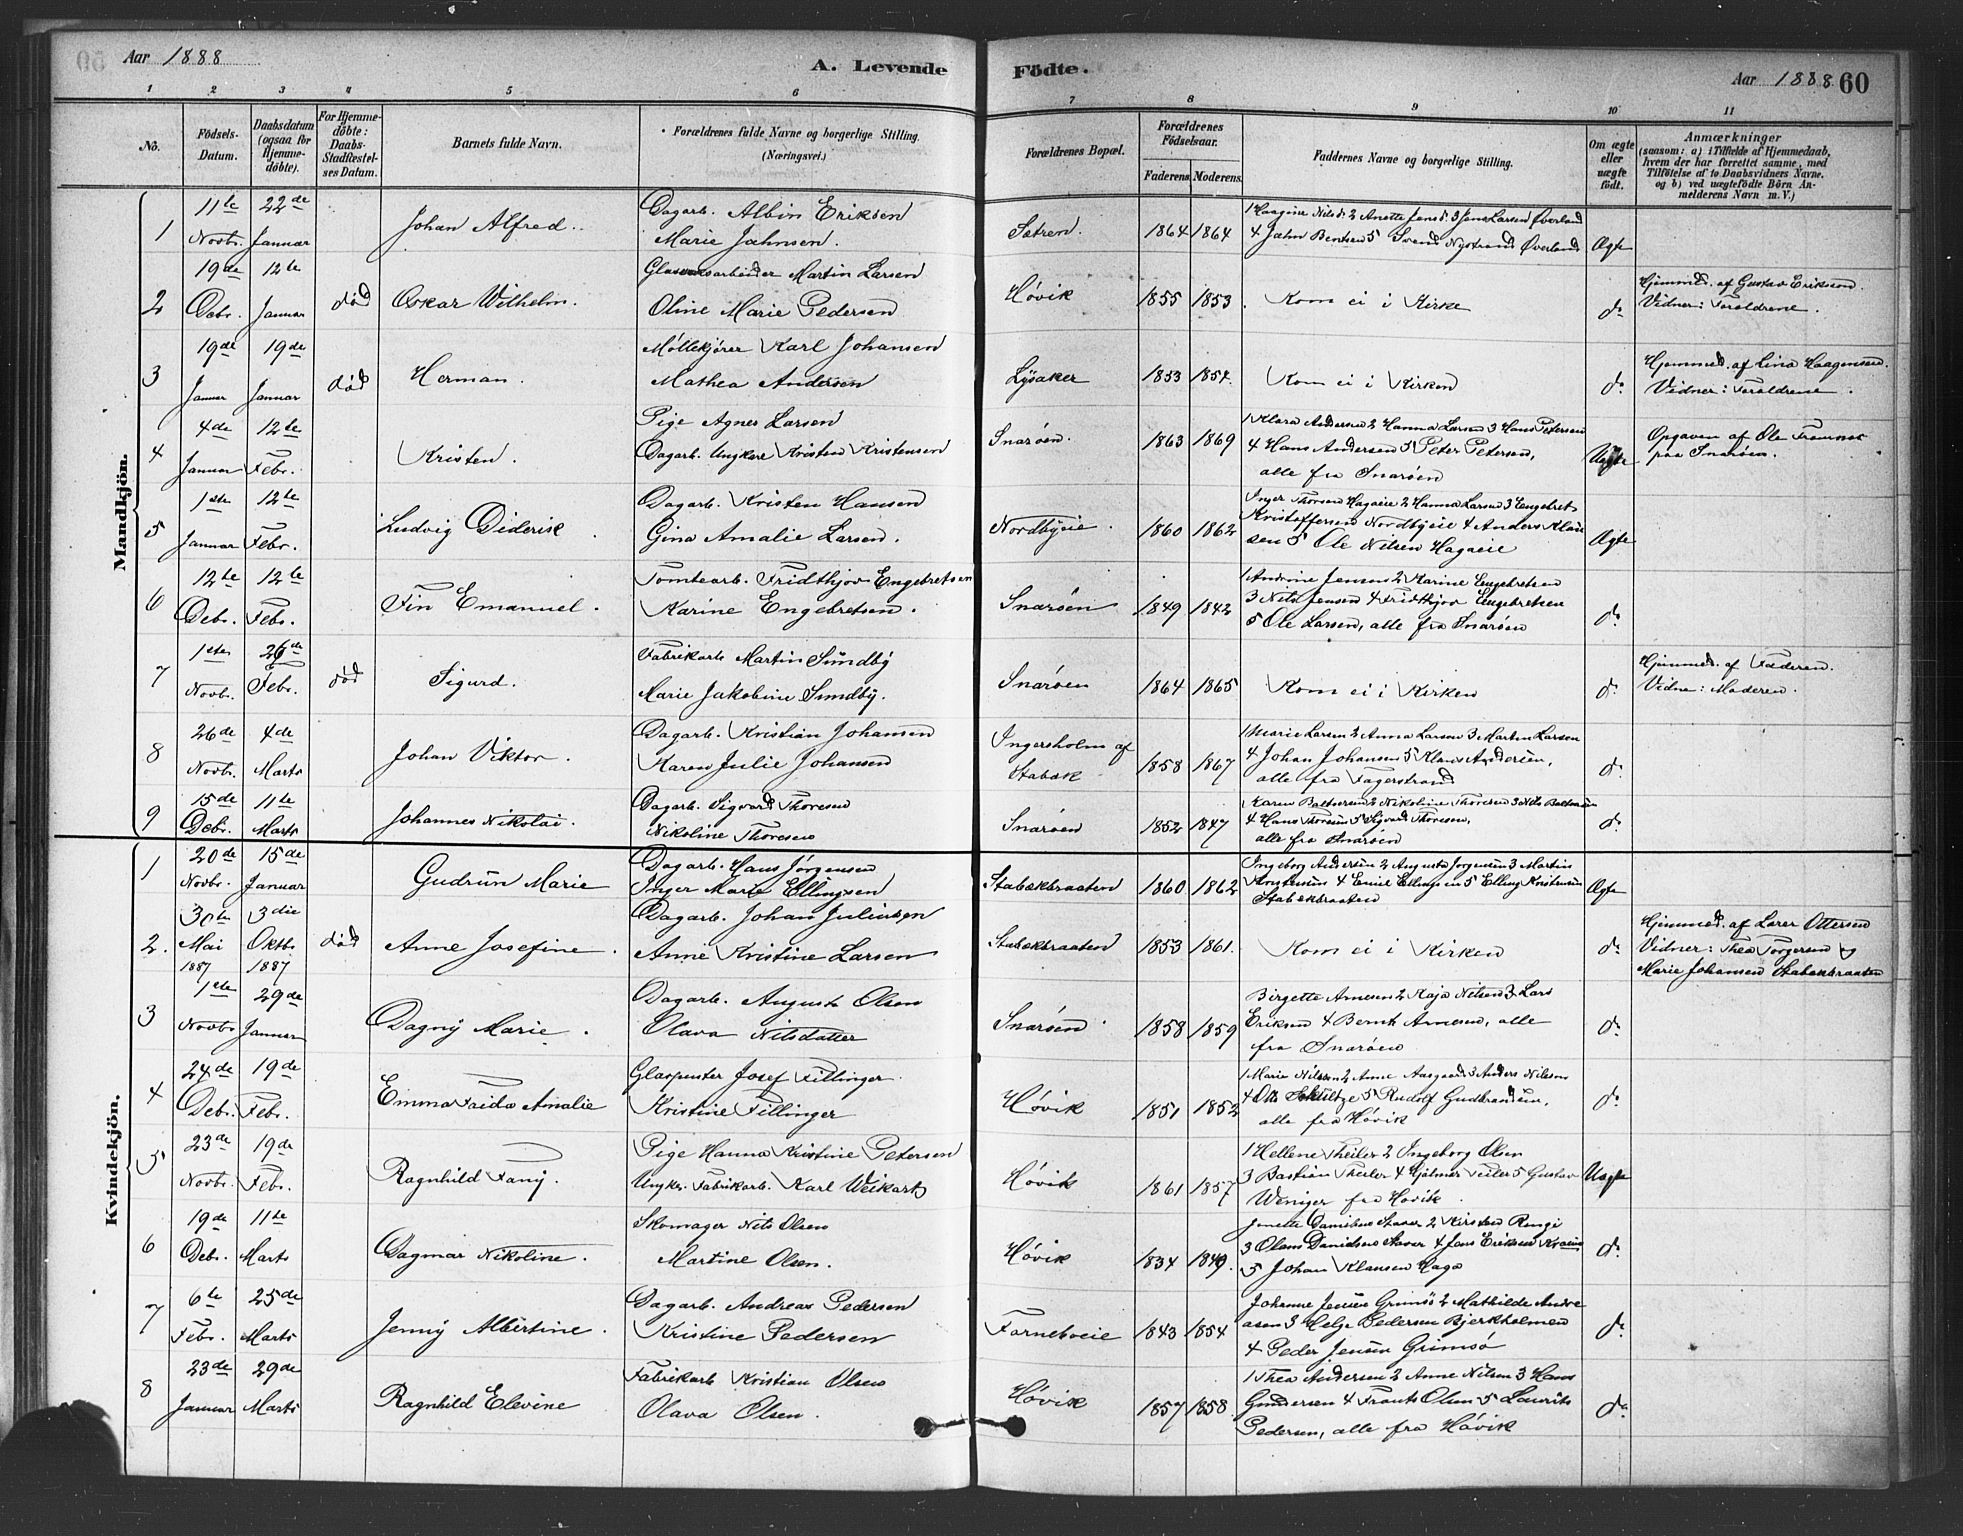 Aar 1888
A. Levende Födte.
Aar 1888 60
1 2 3 4 5 6 7 8 9 10 11
No.
Födsels-Datum.
Daabsdatum (ogsaa for Hjemmedöbte).
For Hjemmedöbte: Daabs-Stadfæstelses Datum.
Barnets fulde Navn.
Forældrenes fulde Navne og borgerlige Stilling. (Næringsvei.)
Forældrenes Bopæl.
Forældrenes Födselsaar.
Faderens. Moderens.
Faddernes Navne og borgerlige Stilling.
Om ægte eller uægte födt.
Anmærkninger
(saasom: a) i Tilfælde af Hjemmedaab,
hvem der har forrettet samme, med
Tilföielse af to Daabsvidners Navne,
og b) ved uægtefödte Börn An-
melderens Navn m. V.)
Mandkjön.
1 11te Novbr. 22de Januar Johan Alfred. Dagarb. Albin Eriksen
Marie Jahnsen. Sætren. 1864 1864 1 Haagine Nilsd. 2 Anette Jensd. 3 Jens Larsen Øverland
4 Jahn Bentsen 5 Svend Nystrand Øverland Ægte
2 19de Debr. 12te Januar død Oskar Wilhelm. Glasværksarbeider Martin Larsen
Oline Marie Pedersen Høvik 1855 1853. Kom ei i Kirke do. Hjemmed. af Gustav Eriksen.
Vidner: Forældrene.
3 19de Januar 19de Januar død Herman. Møllekjører Karl Johansen
Mathea Andersen Lysaker 1853 1854. Kom ei i Kirken do. Hjemmed. af Lina Haagensen.
Vidner: Forældrene.
4 4de Januar 12te Febr. Kristen. Pige Agnes Larsen
Dagarb. Ungkarl Kristen Kristensen Snarøen. 1863 1869 1 Klara Andersen 2 Hanna Larsen 3 Hans Petersen
4 Hans Andersen 5 Peter Petersen,
alle fra Snarøen Uægte Opgaven af Ole
paa Snarøen.
5 1ste Januar 12te Febr. Ludvig Diderik. Dagarb. Kristen Hansen
Gina Amalie Larsen. Nordbyeie. 1860 1862 Inger Thorsen Hagaeie 2 Hanna Larsen 3 Engebret
Kristoffersen Nordbyeie 4 Anders Klau
sen 5 Ole Nilsen Hagaeie Ægte
6 12te Debr. 12te Febr. Fin Emanuel. Tomtearb. Fridthjov Engebretsen
Karine Engebretsen. Snarøen 1849 1842 1 Andrine Jensen 2 Karine Engebretsen
3 Nils Jensen 4 Fridthjov Engebretsen
5 Ole Larsen, alle fra Snarøen do.
7 1ste Novbr. 26de Febr. død Sigurd. Fabrikarb. Martin Sundby
Marie Jakobine Sundby. Snarøen 1864 1865 Kom ei i Kirken do. Hjemmed. af Faderen.
Vidne: Moderen.
8 26de Novbr. 4de Marts Johan Viktor. Dagarb. Kristian Johansen
Karen Julie Johansen Ingersholm af
Stabæk 1858 1867 1 Marie Larsen 2 Anna Larsen 3 Martin Larsen
4 Johan Johansen 5 Klaus Andersen,
alle fra Fagerstrand do.
9 15de Debr. 11te Marts Johannes Nikolai. Dagarb. Sigvard Thoresen
Nikoline Thoresen Snarøen 1852 1847 Karen Baltsersen 2 Nikoline Thoresen 3 Nils Baltsersen
4 Hans Thoresen 5 Sigvard Thoresen,
alle fra Snarøen do.
Kvindekjön.
1 20de Novbr. 15de Januar Gudrun Marie Dagarb. Hans Jörgensen
Inger Marie Ellingsen Stabækbraaten 1860 1862 Ingeborg Andersen 2 Augusta Jørgensen 3 Martin
Kristensen 4 Emil Ellingsen 5 Elling Kristensen
Stabækbraaten Ægte
2. 30te Mai 1887 3die Oktbr. 1887 død Anne Josefine. Dagarb. Johan Juliussen
Anne Kristine Larsen Stabækbraaten 1853 1861. Kom ei i Kirken do. Hjemmed. af Lorer Ottersen
Vidner: Thea Torgersen og
Marie Johansen Stabækbraaten
3 1ste Novbr. 29de Januar Dagny Marie. Dagarb. August Olsen
Olava Nilsdatter Snarøen 1858 1859 Birgette Arnesen 2 Kaja Nilsen 3 Lars
Eriksen 4 Bernt Arnesen, alle
fra Snarøen do.
4 24de Debr. 19de Febr. Emma Faida Amalie Glaspuster Josef Fillinger
Kristine Fillinger Høvik 1851 1852 1 Marie Nilsen 2 Anne Aasgaard 3 Anders Nilsen
4 Otto Schultze 5 Rudolf Gudbrandsen,
alle fra Høvik do.
5 23de Novbr. 19de Febr. Ragnhild Fany. Pige Hanna Kristine Petersen
Ungkr. Fabrikarb. Karl Weikart Høvik 1861 1857 1 Hellene Theiler 2 Ingeborg Olsen
3 Bastian Theiler 4 Hjalmar Teiler 5 Gustav
Weniger fra Høvik. Uægte
6 19de Debr. 11te Marts Dagmar Nikoline. Skomager Nils Olsen
Martine Olsen. Høvik 1834 1849. Jonette Danielsen Staver 2 Kirsten Ringi
3 Olaus Danielsen Staver 4 Jens Eriksen
5 Johan Klausen Haga do.
7 6te Febr. 25de Marts Jenny Albertine. Dagarb. Andreas Pedersen
Kristine Pedersen Forneboeie 1843 1854 Johanne Jensen Grimsø 2 Mathilde Andre
asen 3 Helge Pedersen Bjerkholmen
4 Peder Jensen Grimsø do.
8 23de Januar 29de Marts Ragnhild Elevine Fabrikarb. Kristian Olsen
Olava Olsen. Høvik 1857 1858. 1 Thea Andersen 2 Anne Nilsen 3 Hans
Gundersen 4 Frants Olsen 5 Laurits
Pedersen, alle fra Høvik do.